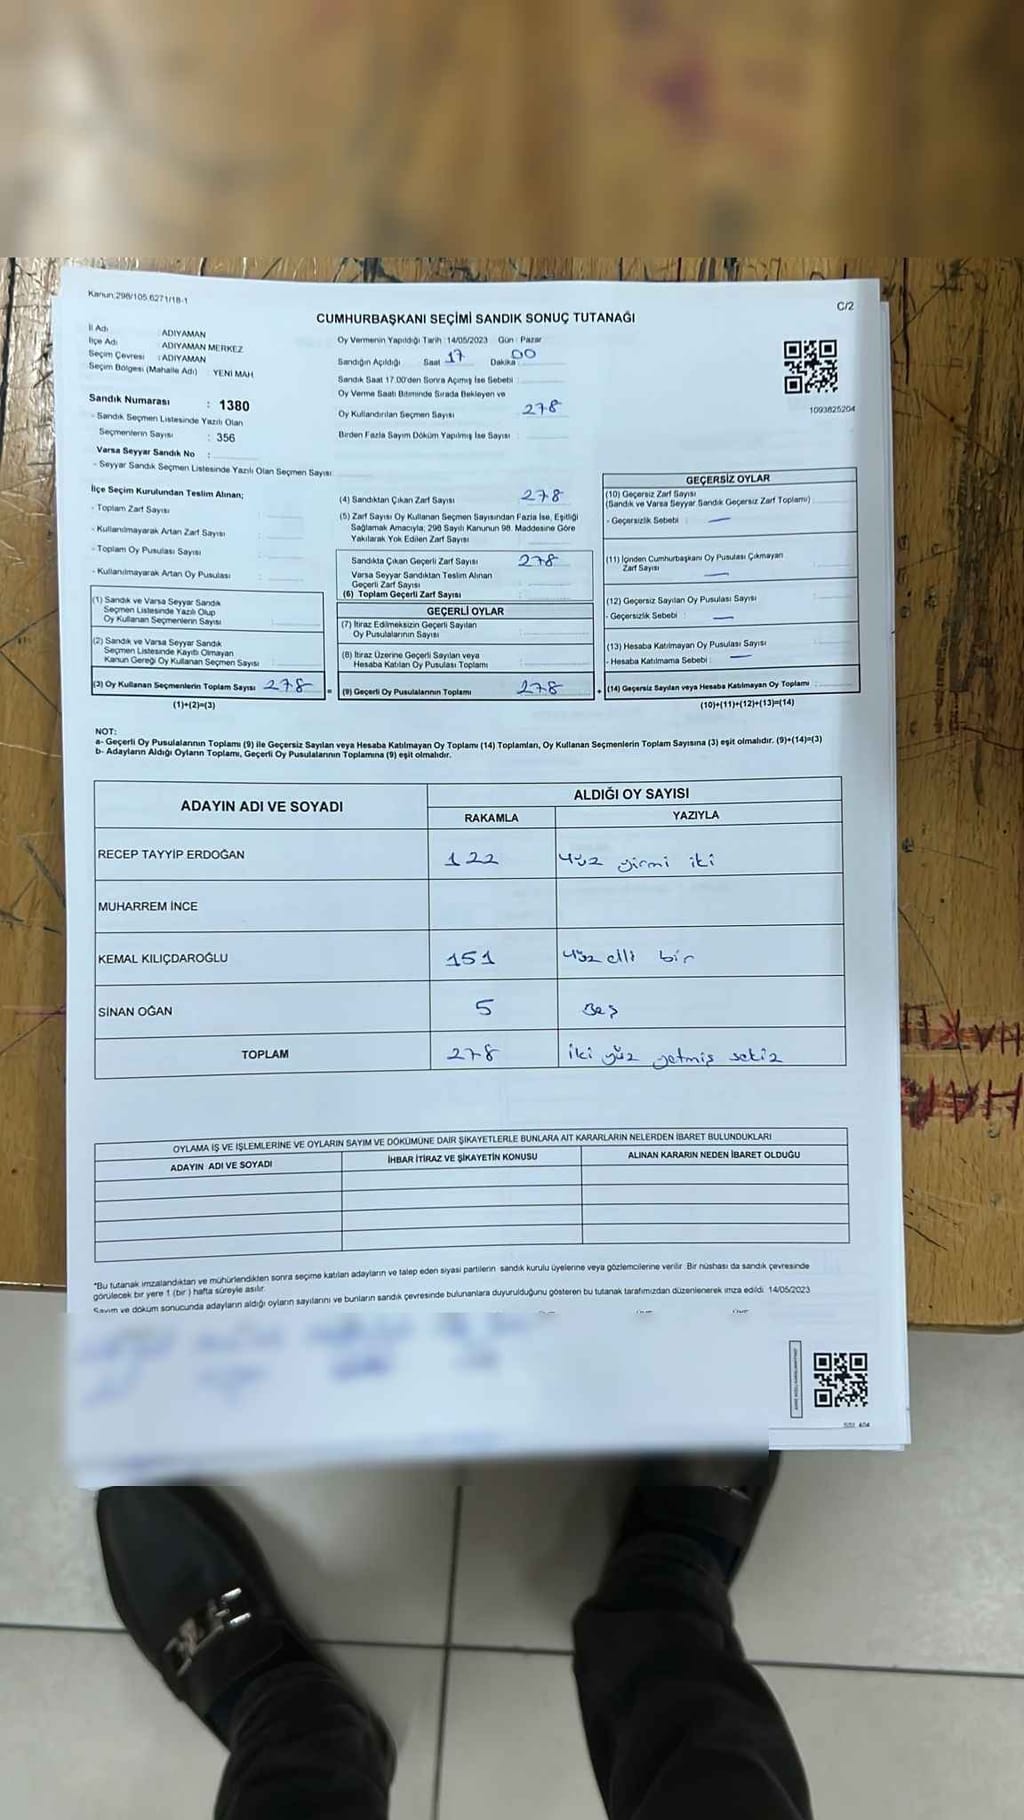 Kanun:298/105.6271/18-1
C/2
CUMHURBAŞKANI SEÇİMİ SANDIK SONUÇ TUTANAĞI
İl Adı : ADIYAMAN
İlçe Adı : ADIYAMAN MERKEZ
Seçim Çevresi : ADIYAMAN
Seçim Bölgesi (Mahalle Adı) : YENİ MAH
Sandık Numarası : 1380
- Sandık Seçmen Listesinde Yazılı Olan
Seçmenlerin Sayısı : 356
Varsa Seyyar Sandık No :
- Seyyar Sandık Seçmen Listesinde Yazılı Olan Seçmen Sayısı:
Oy Vermenin Yapıldığı Tarih : 14/05/2023 Gün : Pazar
Sandığın Açıldığı Saat 17 Dakika 00
Sandık Saat 17.00'den Sonra Açımış İse Sebebi :
Oy Verme Saati Bitiminde Sırada Bekleyen ve
Oy Kullandırılan Seçmen Sayısı 278
Birden Fazla Sayım Döküm Yapılmış İse Sayısı :
1093825204
İlçe Seçim Kurulundan Teslim Alınan;
- Toplam Zarf Sayısı :
- Kullanılmayarak Artan Zarf Sayısı :
- Toplam Oy Pusulası Sayısı :
- Kullanılmayarak Artan Oy Pusulası :
(1) Sandık ve Varsa Seyyar Sandık
Seçmen Listesinde Yazılı Olup
Oy Kullanan Seçmenlerin Sayısı :
(2) Sandık ve Varsa Seyyar Sandık
Seçmen Listesinde Kayıtlı Olmayan
Kanun Gereği Oy Kullanan Seçmen Sayısı :
(3) Oy Kullanan Seçmenlerin Toplam Sayısı 278
(1)+(2)=(3)
(4) Sandıktan Çıkan Zarf Sayısı 278
(5) Zarf Sayısı Oy Kullanan Seçmen Sayısından Fazla İse, Eşitliği
Sağlamak Amacıyla; 298 Sayılı Kanunun 98. Maddesine Göre
Yakılarak Yok Edilen Zarf Sayısı
Sandıkta Çıkan Geçerli Zarf Sayısı 278
Varsa Seyyar Sandıktan Teslim Alınan
Geçerli Zarf Sayısı
(6) Toplam Geçerli Zarf Sayısı
GEÇERLİ OYLAR
(7) İtiraz Edilmeksizin Geçerli Sayılan
Oy Pusulalarının Sayısı
(8) İtiraz Üzerine Geçerli Sayılan veya
Hesaba Katılan Oy Pusulası Toplamı
= (9) Geçerli Oy Pusulalarının Toplamı 278 +
GEÇERSİZ OYLAR
(10) Geçersiz Zarf Sayısı
(Sandık ve Varsa Seyyar Sandık Geçersiz Zarf Toplamı)
- Geçersizlik Sebebi : —
(11) İçinden Cumhurbaşkanı Oy Pusulası Çıkmayan
Zarf Sayısı —
(12) Geçersiz Sayılan Oy Pusulası Sayısı
- Geçersizlik Sebebi : —
(13) Hesaba Katılmayan Oy Pusulası Sayısı
- Hesaba Katılmama Sebebi : —
(14) Geçersiz Sayılan veya Hesaba Katılmayan Oy Toplamı :
(10)+(11)+(12)+(13)=(14)
NOT:
a- Geçerli Oy Pusulalarının Toplamı (9) ile Geçersiz Sayılan veya Hesaba Katılmayan Oy Toplamı (14) Toplamları, Oy Kullanan Seçmenlerin Toplam Sayısına (3) eşit olmalıdır. (9)+(14)=(3)
b- Adayların Aldığı Oyların Toplamı, Geçerli Oy Pusulalarının Toplamına (9) eşit olmalıdır.
ADAYIN ADI VE SOYADI
ALDIĞI OY SAYISI
RAKAMLA YAZIYLA
RECEP TAYYİP ERDOĞAN 122 yüz yirmi iki
MUHARREM İNCE
KEMAL KILIÇDAROĞLU 151 yüz elli bir
SİNAN OĞAN 5 Beş
TOPLAM 278 iki yüz yetmiş sekiz
OYLAMA İŞ VE İŞLEMLERİNE VE OYLARIN SAYIM VE DÖKÜMÜNE DAİR ŞİKAYETLERLE BUNLARA AİT KARARLARIN NELERDEN İBARET BULUNDUKLARI
ADAYIN ADI VE SOYADI İHBAR İTİRAZ VE ŞİKAYETİN KONUSU ALINAN KARARIN NEDEN İBARET OLDUĞU
*Bu tutanak imzalandıktan ve mühürlendikten sonra seçime katılan adayların ve talep eden siyasi partilerin sandık kurulu üyelerine veya gözlemcilerine verilir. Bir nüshası da sandık çevresinde
görülecek bir yere 1 (bir) hafta süreyle asılır.
Sayım ve döküm sonucunda adayların aldığı oyların sayılarını ve bunların sandık çevresinde bulunanlara duyurulduğunu gösteren bu tutanak tarafımızdan düzenlenerek imza edildi. 14/05/2023